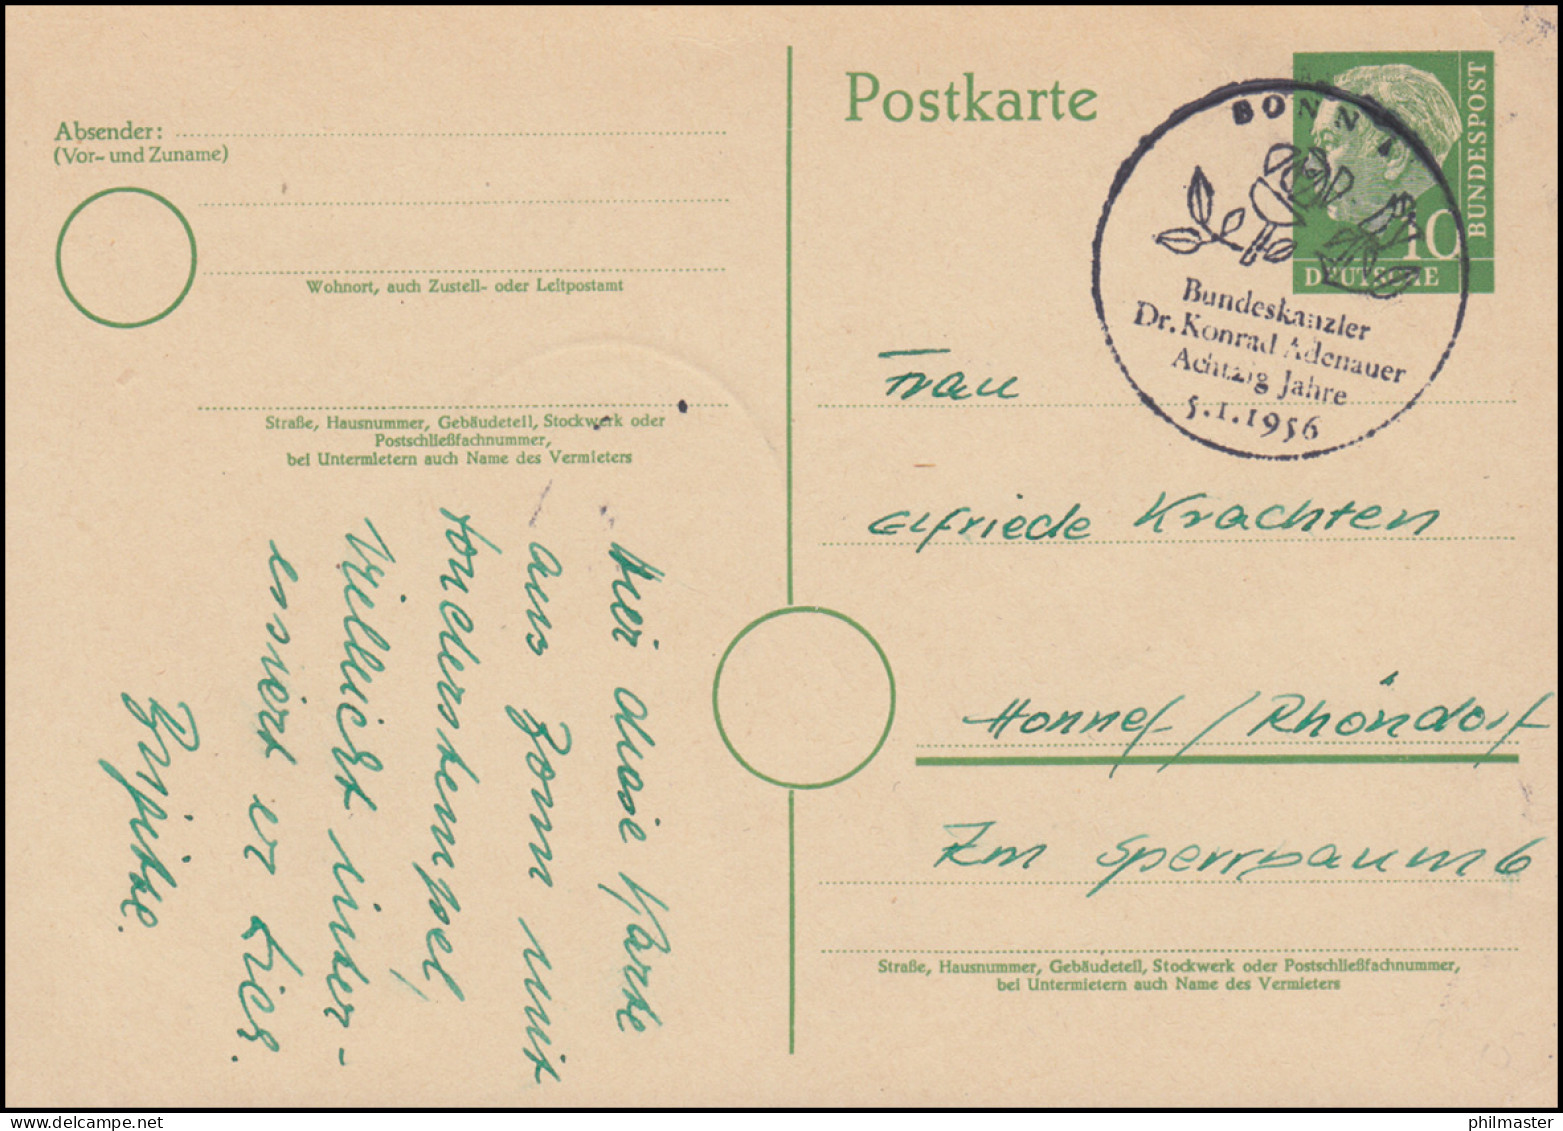 Postkarte
BUNDESPOST
10
DEUTSCHE
BONN 1
Bundeskanzler
Dr. Konrad Adenauer
Achtzig Jahre
5.1.1956
Absender:
(Vor- und Zuname)
Wohnort, auch Zustell- oder Leitpostamt
Straße, Hausnummer, Gebäudeteil, Stockwerk oder
Postschließfachnummer,
bei Untermieters auch Name des Vermieters
Hier diese Karte
aus Bonn mit
Sonderstempel,
Vielleicht inter-
essiert er Dich.
Brigitte.
Frau
Elfriede Krachten
Honnef / Rhöndorf
Zm Sperrbaum 6
Straße, Hausnummer, Gebäudeteil, Stockwerk oder Postschließfachnummer,
bei Untermietern auch Name des Vermieters
philmaster